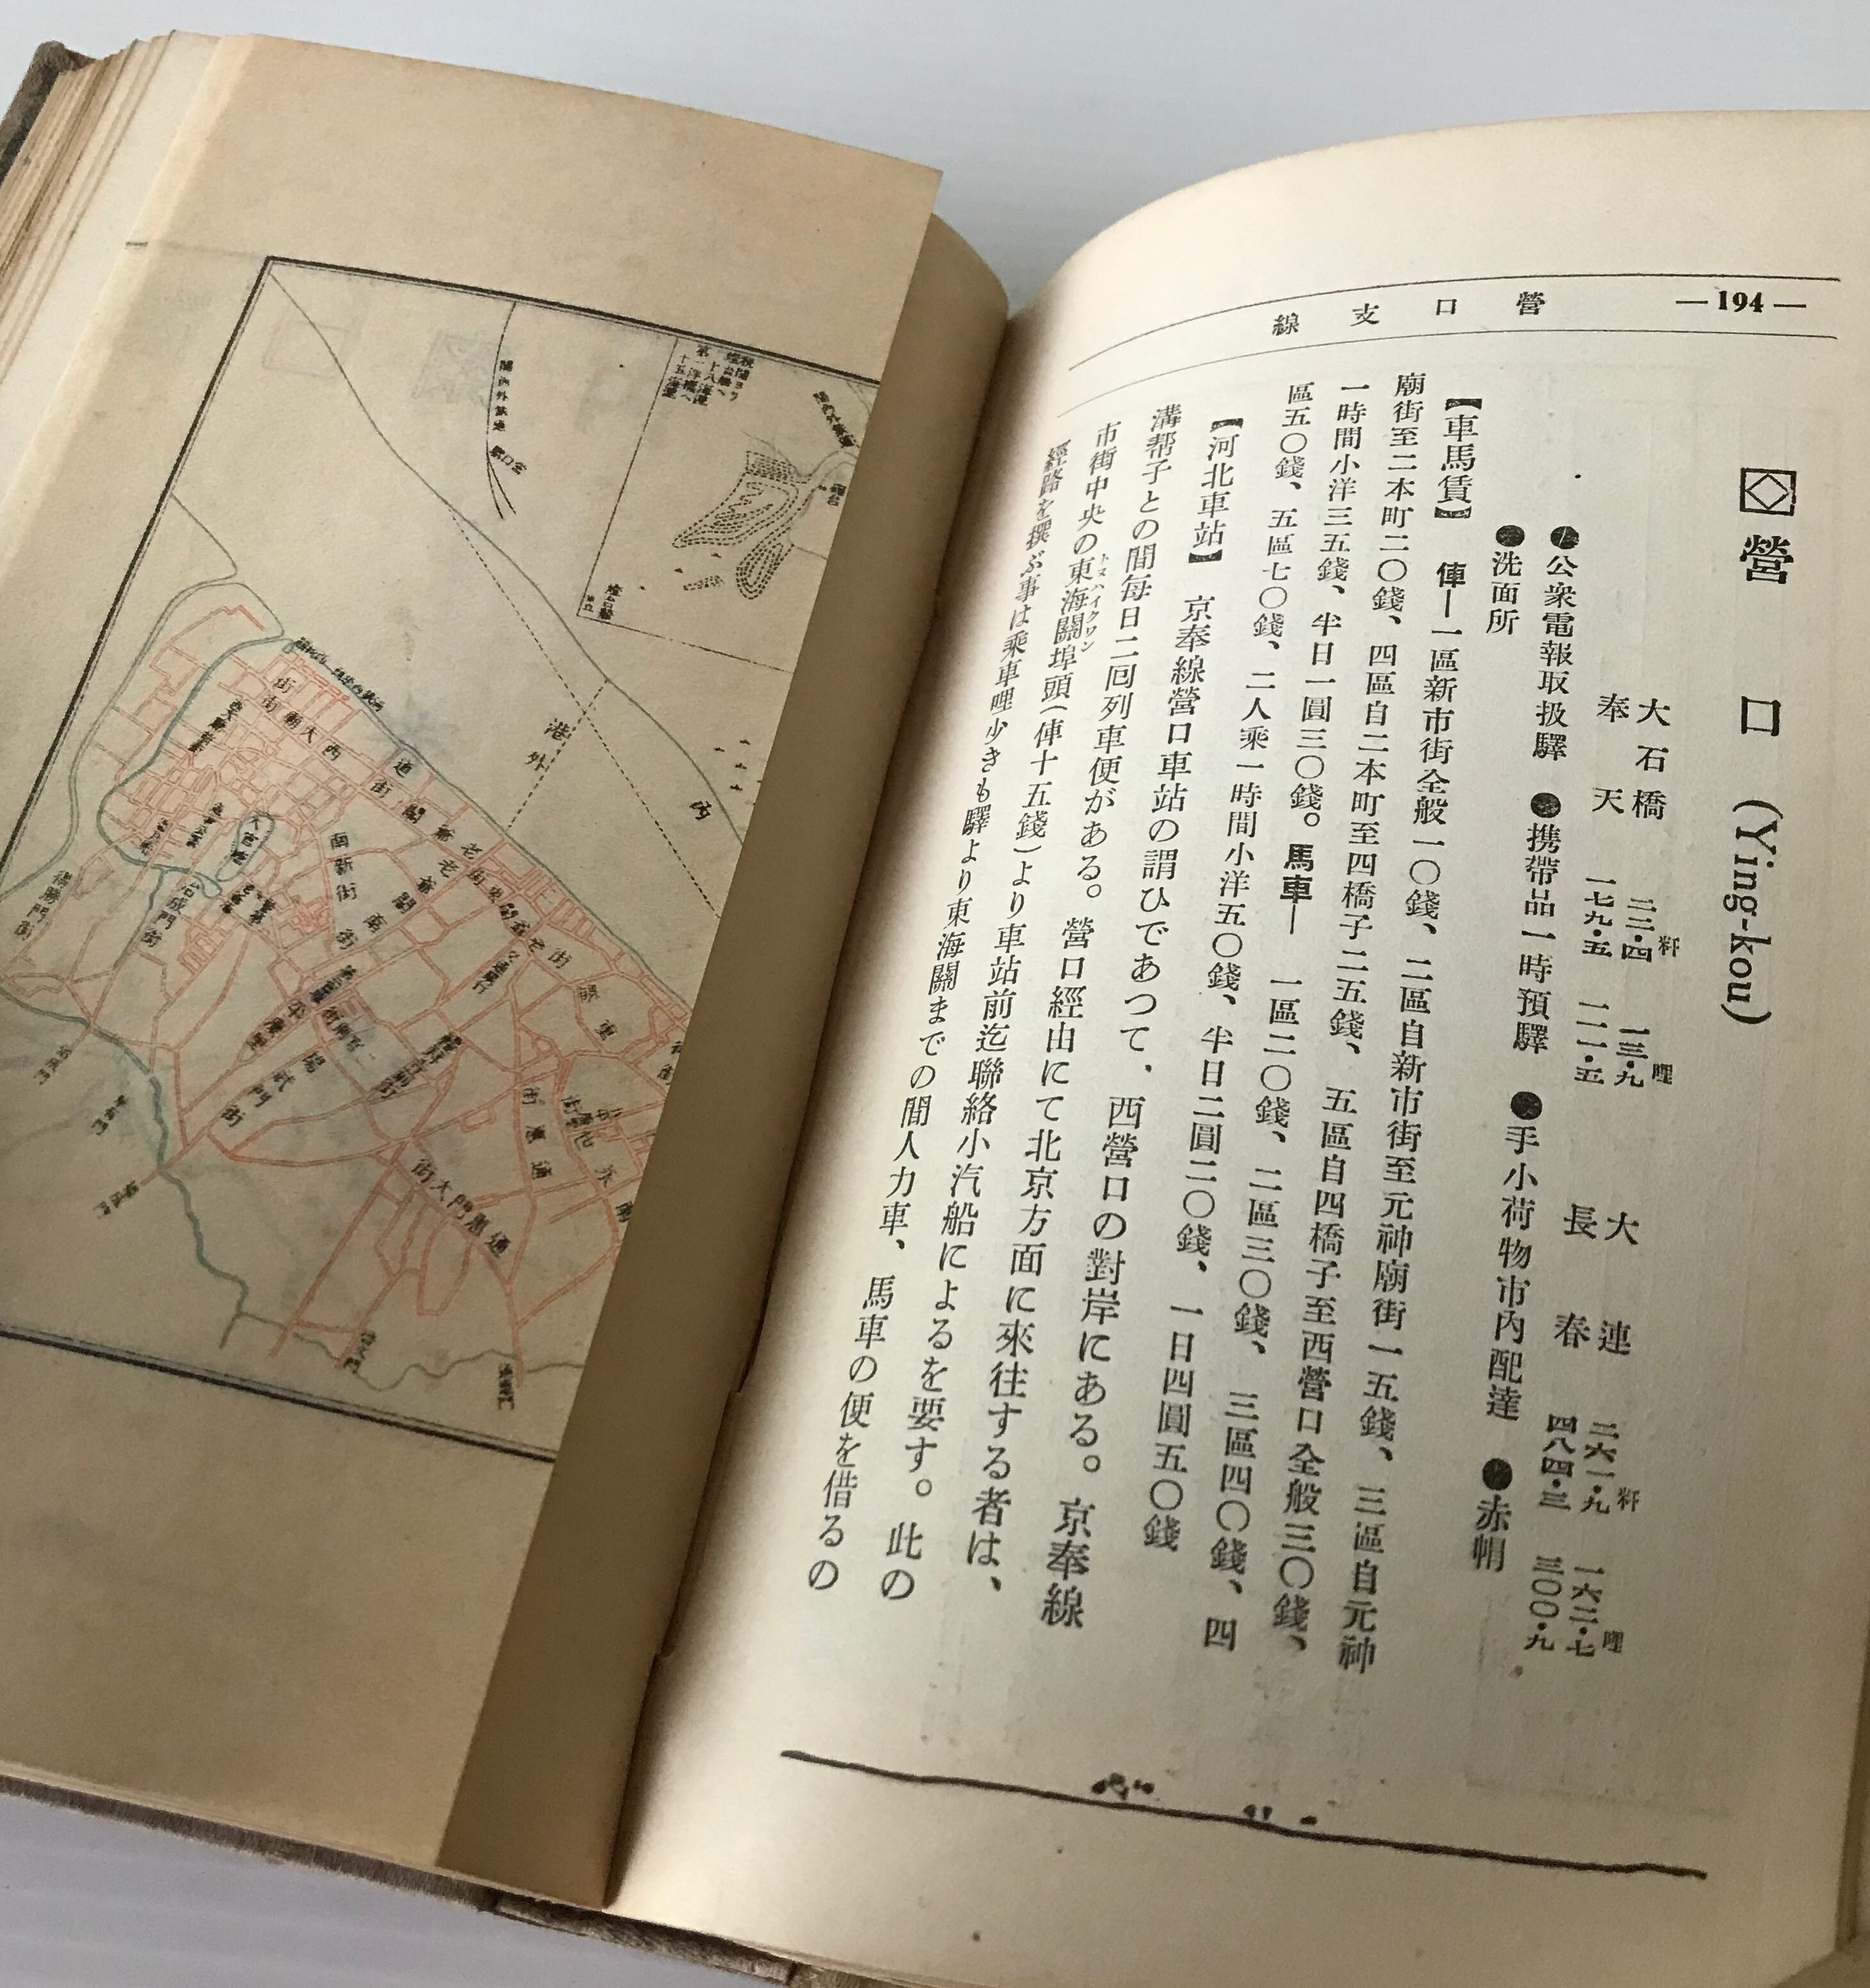 —194—
營口支線
營口 (Ying-kou)
大石橋 二二・四粁 一三・九哩
奉天 一七九・五 一一一・五
大連 二六一・九粁 一六二・七哩
長春 四八四・三 三〇〇・九
●公衆電報取扱驛 ●携帶品一時預驛 ●手小荷物市内配達 ●赤帽
●洗面所
【車馬賃】 俥—一區新市街全般一〇錢、二區自新市街至元神廟街一五錢、三區自元神
廟街至二本町二〇錢、四區自二本町至四橋子二五錢、五區自四橋子至西營口全般三〇錢、
一時間小洋三五錢、半日一圓三〇錢。馬車— 一區二〇錢、二區三〇錢、三區四〇錢、四
區五〇錢、五區七〇錢、二人乘一時間小洋五〇錢、半日二圓二〇錢、一日四圓五〇錢
【河北車站】 京奉線營口車站の謂ひであつて、西營口の對岸にある。京奉線
溝帮子との間毎日二回列車便がある。營口經由にて北京方面に來往する者は、
市街中央の東海關埠頭(俥十五錢)より車站前迄聯絡小汽船によるを要す。此の
トヌハイクワン
經路を撰ぶ事は乘車哩少きも驛より東海關までの間人力車、馬車の便を借るの
港外
内
西大廟街
南新街
老爺閣街
老爺閣南街
老爺閣東街
通惠門大街
通惠街
揚武門街